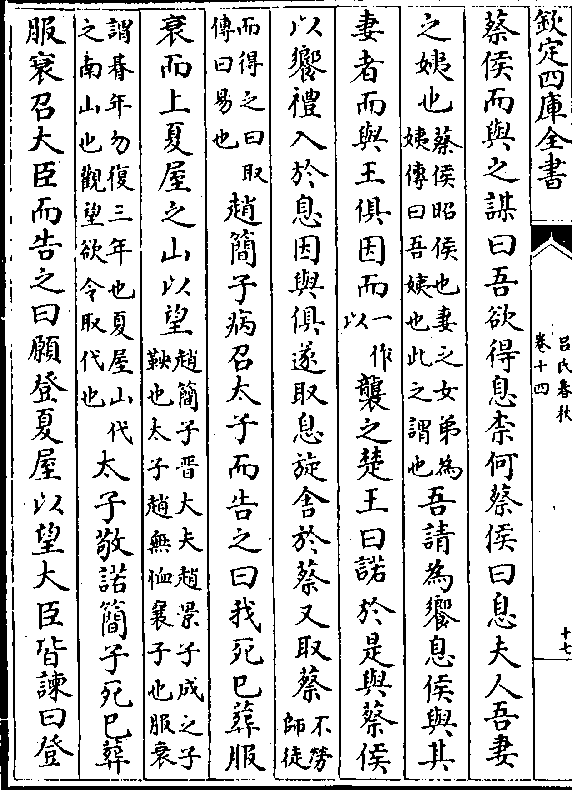 欽定四庫全書
呂氏春秋
卷十四
十七
蔡侯而與之謀曰吾欲得息柰何蔡侯曰息夫人吾妻
之姨也蔡侯昭侯也妻之女弟為姨傳曰吾姨也此之謂也吾請為饗息侯與其
妻者而與王俱因而一作以襲之楚王曰諾於是與蔡侯
以饗禮入於息因與俱遂取息旋舍於蔡又取蔡不勞師徒
而得之曰取傳曰易也趙簡子病召太子而告之曰我死已葬服
衰而上夏屋之山以望趙簡子晉大夫趙景子成之子鞅也太子趙無恤襄子也服衰
謂朞年勿復三年也夏屋山代之南山也觀望欲令取代也太子敬諾簡子死已葬
服衰召大臣而告之曰願登夏屋以望大臣皆諫曰登